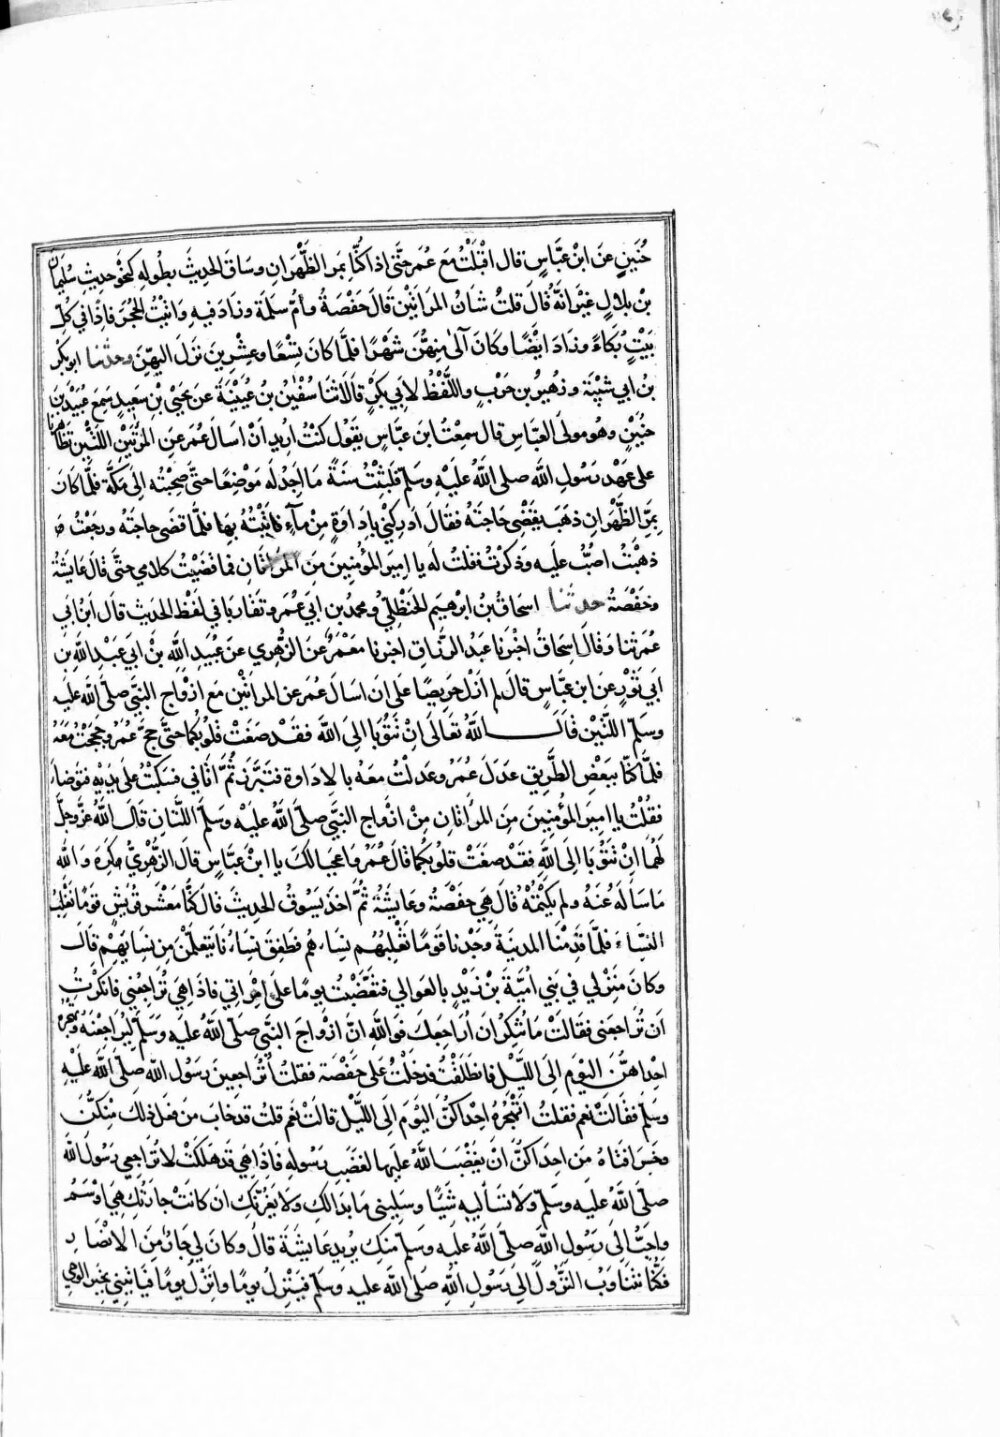 حُنَينٍ عَن ابْن عبَّاسٍ قال اقبَلْتُ مَعَ عُمَر حَتَّى اذا كُنَّا بمَرِ الظَّهْرَانِ وسَاقَ الحديثَ بطُولِهِ كنحْوِ حديثِ سُلَيمَان
بْن بلالٍ غيْرَ انَّهُ قالَ قلتُ شَانُ المرَاتَيْنِ قالَ حَفْصَةُ وامُّ سَلمَةَ وزادَ فيهِ وَاتيْتُ الحُجَرَ فاِذَا في كلِّ
بَيْتٍ بُكاءً وزادَ ايْضًا وكَانَ آلىٰ مِنهُنَّ شَهْرًا فلمَّا كانَ تِسْعًا وعِشْرِينَ نزَلَ اليْهنَّ وحدثنا ابوبكر
بْن ابي شيْبَة وزهَيرُ بْن حَرْبٍ واللَّفْظُ لابي بَكْرٍ قالَا ثنا سُفْيٰنُ بْنُ عُيَيْنَةَ عَن يحيَى بْنِ سَعِيدٍ سَمِعَ عُبَيْد بْنَ
حُنَيْنٍ وهُو مولَى العَبَّاسِ قال سمعْتُ ابنَ عبَّاسٍ يقولُ كنتُ اريد اَنْ اسَالَ عُمَرَ عَنِ المَرْتَيْنِ اللَّتَيْنِ تظَاهَرَتا
على عهْدِ رسُولِ الله صلى اللَّهُ عليْهِ وسَلمَ فلبِثْتُ سنَةً مَا اجِدُ لَه مَوْضِعًا حتَّى صحِبْتُه الى مكَّةَ فلمَّا كانَ
بمَرِّ الظَّهْرَانِ ذهَبَ يقضِي حَاجَتَهُ فقالَ ادركْنِي بادَاوَةٍ مِنْ مآءٍ فاتيْتُهُ بِهَا فلمَّا قضَى حاجَتَهُ ورجَعْتُ
ذهبْتُ اصُبُّ علَيهِ وذكَرْتُ فقلتُ لَه يا امِيرَ المؤمِنينَ مَنِ المَرْاتَانِ فما قضَيْتُ كلامي حتَّى قالَ عايشَةُ
وحَفْصَةُ حدثنا اسحَاقُ بْنُ ابرهيم الحنْظَليُّ ومحمدُ بْن ابي عُمَر وتقارَبَا في لفظِ الحديثِ قالَ ابنُ ابي
عُمَرَ ثنا وقالَ اِسحَاقُ اخبَرَنا عَبدُ الرزَّاقِ اخبرنا مَعْمَرٌ عن الزُّهْرِي عَنْ عُبَيدِ اللَّهِ بْنِ ابي عَبدِ اللَّهِ بْنِ
ابي ثوْرٍ عَن ابن عبَّاسٍ قالَ لم ازَلْ حَرِيصًا عَلى اَن اسَالَ عُمَرَ عَن المراتَيْنِ مَعَ ازْواجِ النبيِّ صلى الله عليه
وسَلم اللتَيْنِ قالَ اللَّهُ تعَالَى اِنْ تتُوبَا الى اللَّهِ فقَدْ صَغَتْ قلُوبُكمَا حتَّى حجَّ عُمَرُ وحَجَجْتُ مَعَهُ
فلمَّا كنَّا ببَعْضِ الطَّرِيقِ عَدَلَ عُمَرُ وعَدلْتُ معَهُ بالادَاوةِ فتَبَرَّزَ ثُمَّ اتَاني فسَكبْتُ على يدَيْهِ فتوضا،
فقُلْتُ يا امِيرَ المؤمِنِينَ مَنِ المرْاتانِ مِنْ ازْواجِ النبيِّ صلَّى اللَّهُ عليْهِ وسَلَّمَ اللَّتَانِ قَالَ اللَّهُ عزَّ وجلَّ
لَهُمَا اِنْ تتُوبَا الى اللَّهِ فقَدْ صغَتْ قلوبُكُمَا قالَ عُمَرُ وَاعجبَا لَكَ يا ابْن عبَّاسٍ قالَ الزُّهْرِيُّ كَرِهَ وَاللَّه
مَا سَالَهُ عَنْهُ ولم يَكْتُمْهُ قالَ هِيَ حَفْصَةُ وعَايشَةُ ثُمَّ اخَذ يَسُوقُ الحَديثَ قالَ كنَّا مَعْشرَ قرَيْشٍ قَوْمًا نغْلِبُ
النسَاءَ فلمَّا قدِمْنَا المدِينَةَ وجَدْنا قَومًا تَغْلبُهُم نِسَاءُهُم فطَفِقَ نِسَاءُنا يَتعَلمْنَ مِن نِسَايهِمْ قالَ
وكَانَ منْزِلي في بَني اُمَيَّةَ بْنِ زَيْدٍ بالعَوالي فتغَضَّبْتُ يومًا على امْرَاتي فاذا هِيَ تُرَاجعُنِي فانكرْتُ
اَن تُراجعَنِي فقالتْ مَا تُنكِرُ اَن اُرَاجعَكَ فوَاللَّهِ انَّ ازْواجَ النبيِّ صلَّى اللَّهُ عليهِ وسَلمَ ليُراجعْنَهُ وتهجره
احْدَاهُنَّ اليَوْمَ الى اللَّيْلِ فانطلَقْتُ فدخلْتُ عَلى حَفْصَة فقلتُ اتُرَاجعينَ رَسُولَ الله صلى اللَّه عليْهِ
وسَلمَ فقالَتْ نعَم فقلتُ اتَهْجُرُهُ اِحْدَاكنَّ اليَوْمَ الى اللَّيْلِ قالَتْ نعَم قلتُ قد خابَ مَن فعَلَ ذلك مِنْكُنَّ
وخَسِرَ افتَامَنُ احدَاكنَّ اَنْ يغضَبَ اللَّهُ عليهَا لغَضبِ رسُولِه فاذا هِيَ قد هَلكَتْ لا تُراجعي رَسُولَ الله
صلَّى اللَّهُ عليْه وسَلَّم ولَا تَسْاليهِ شَيئًا وسَلِينِي مَا بَدا لكِ ولا يَغُرَّنَّكِ ان كانَتْ جَارَتُكِ هِيَ اوْسَمُ
واحَبُّ الى رسُولِ الله صلَّى اللَّهُ عليْه وسَلَّمَ مِنكِ يُرِيد عايشَةَ قالَ وكانَ لي جَارٌ مِنَ الانْصَارِ
فكُنَّا نتَناوَبُ النُّزُولَ الى رسُولِ اللهِ صلَّى اللَّهُ عليه وسَلَّم فيَنْزِلُ يَومًا وانْزِلُ يومًا فيَاتينِي بخَبرِ الوحيِ